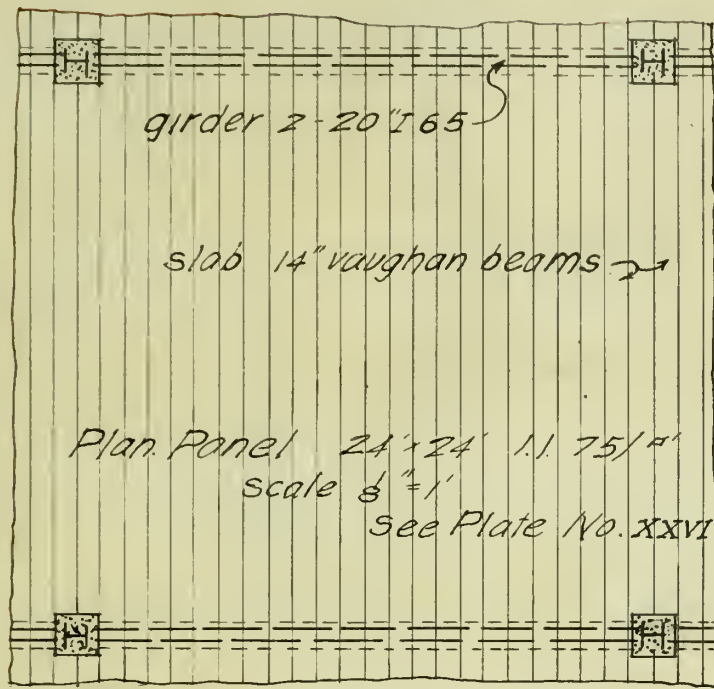 girder 2-20"I 65
slab 14" vaughan beams
Plan. Panel 24'×24' l.l. 75/□'
scale ⅛"=1'
see Plate No. XXVI